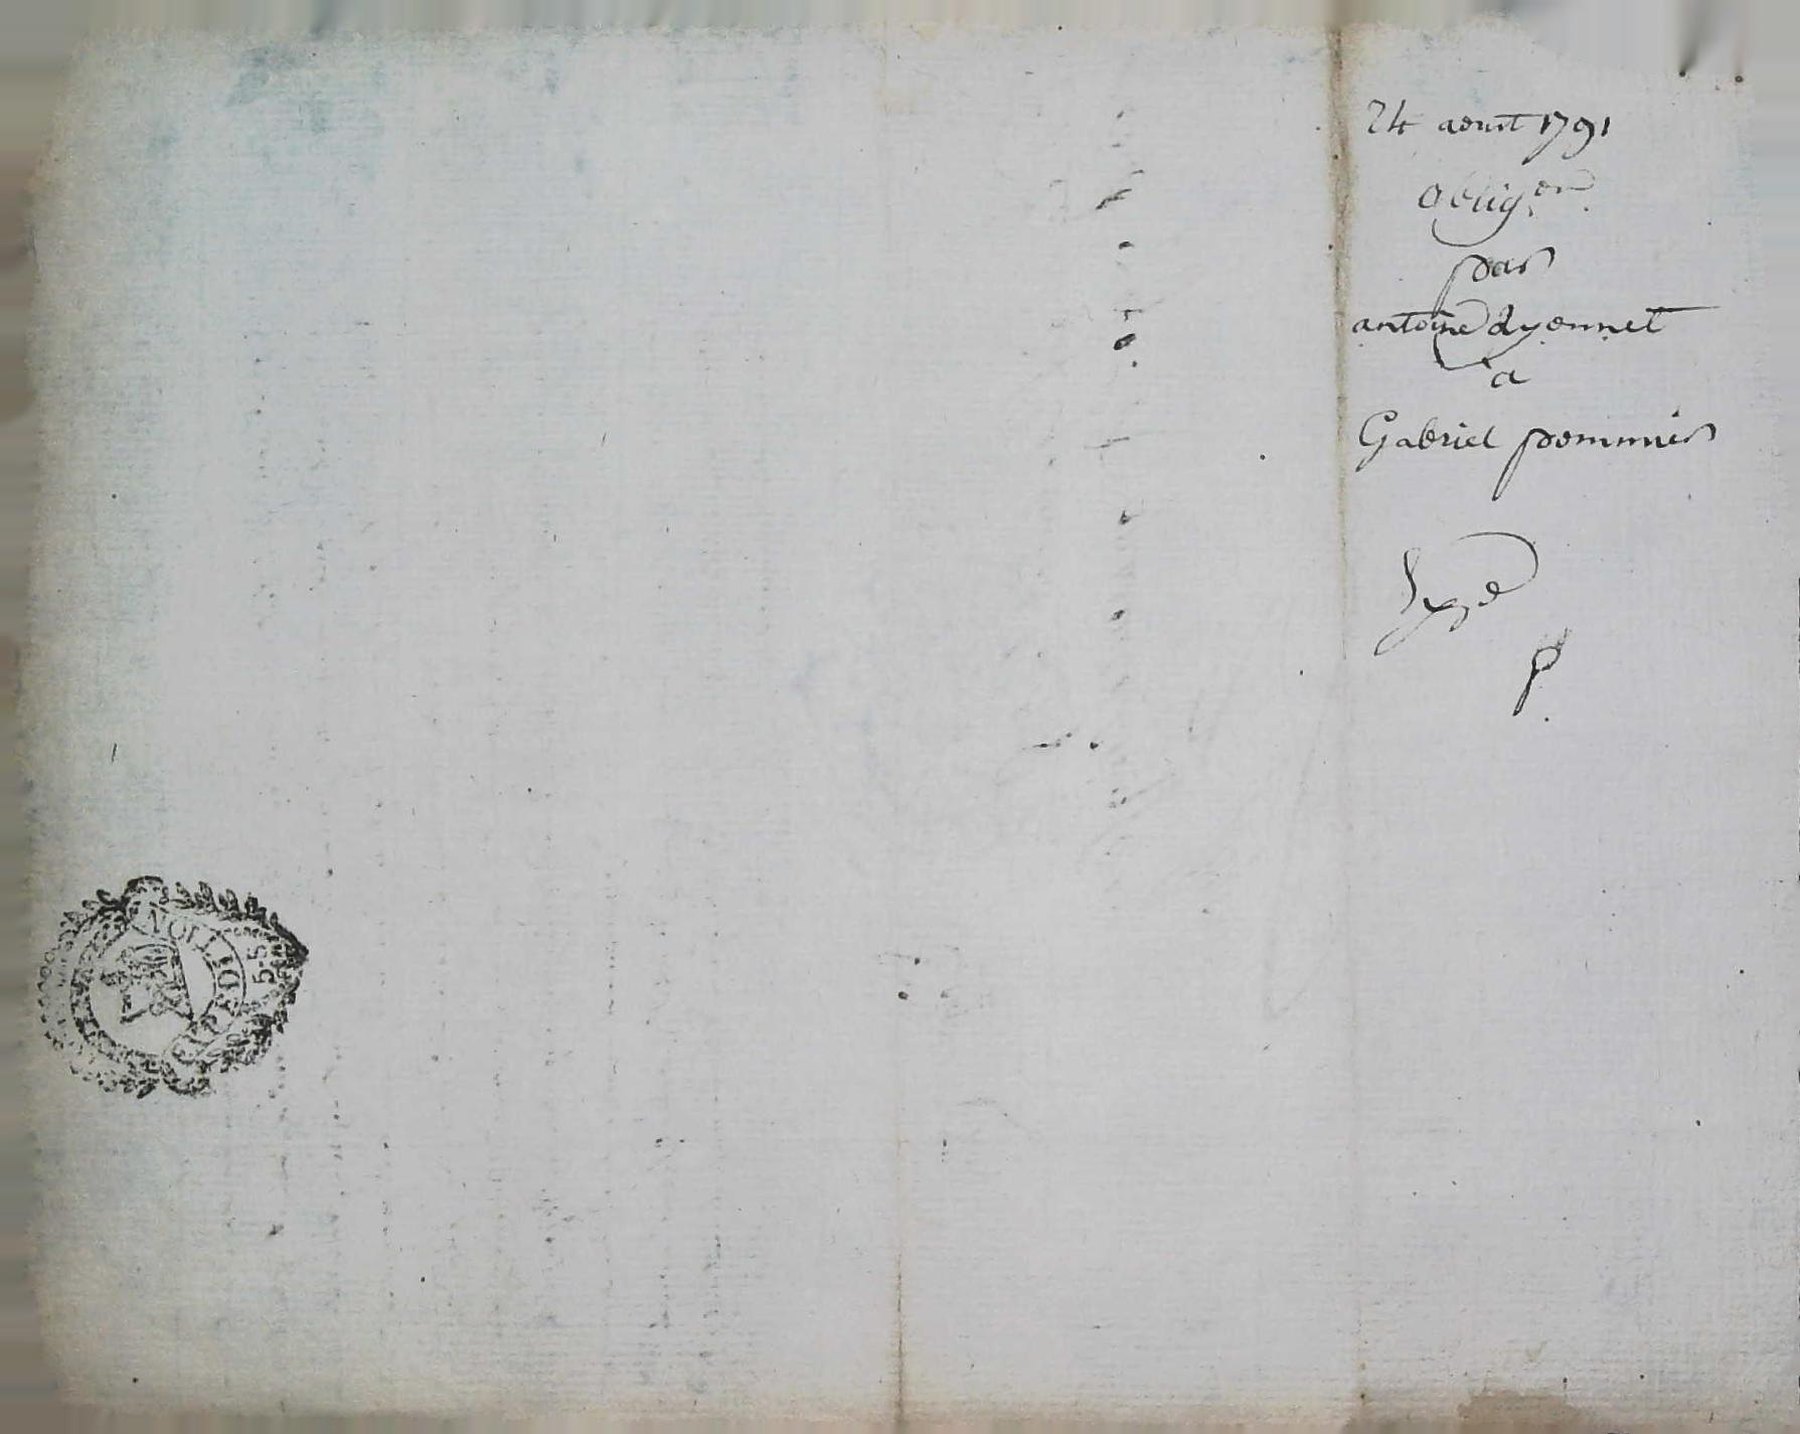 24 aoust 1791
oblig.on
par
antoine dyonnet
a
Gabriel pommier